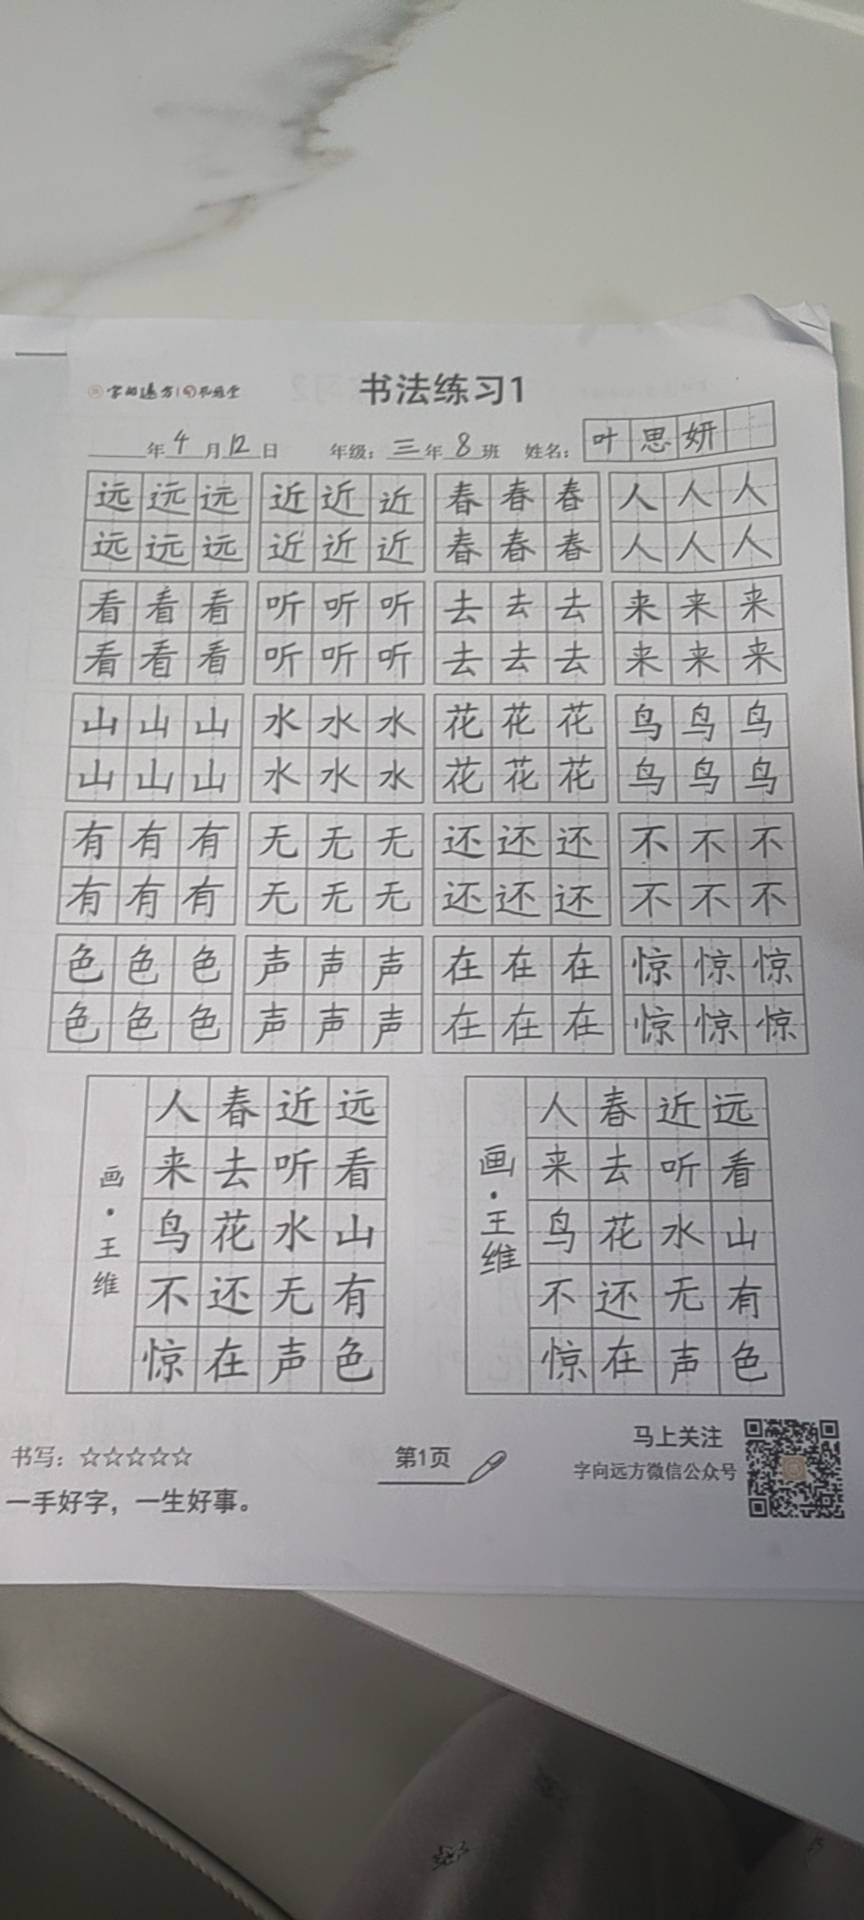 字向远方 孔题堂
书法练习1
年4月12日 年级：三年8班 姓名：叶思妍
远远远 近近近 春春春 人人人
远远远 近近近 春春春 人人人
看看看 听听听 去去去 来来来
看看看 听听听 去去去 来来来
山山山 水水水 花花花 鸟鸟鸟
山山山 水水水 花花花 鸟鸟鸟
有有有 无无无 还还还 不不不
有有有 无无无 还还还 不不不
色色色 声声声 在在在 惊惊惊
色色色 声声声 在在在 惊惊惊
远看山有色
近听水无声
春去花还在
人来鸟不惊
画·王维
远看山有色
近听水无声
春去花还在
人来鸟不惊
画·王维
书写：☆☆☆☆☆
一手好字，一生好事。
第1页
马上关注
字向远方微信公众号